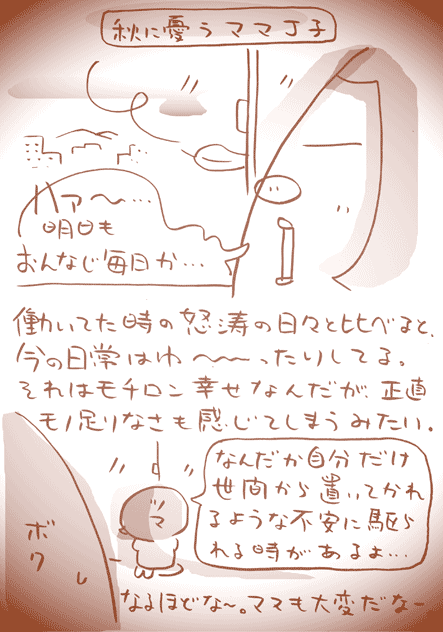 秋に憂うママ丁子
ハァ〜〜…
明日も
おんなじ毎日か…
働いてた時の怒涛の日々と比べると、
今の日常はわ〜〜〜ったりしてる。
それはモチロン幸せなんだが、正直
モノ足りなさも感じてしまうみたい。
なんだか自分だけ
世間から置いてかれ
るような不安に駆ら
れる時があるよ…
ツマ
ボクし
なるほどな〜。ママも大変だなー